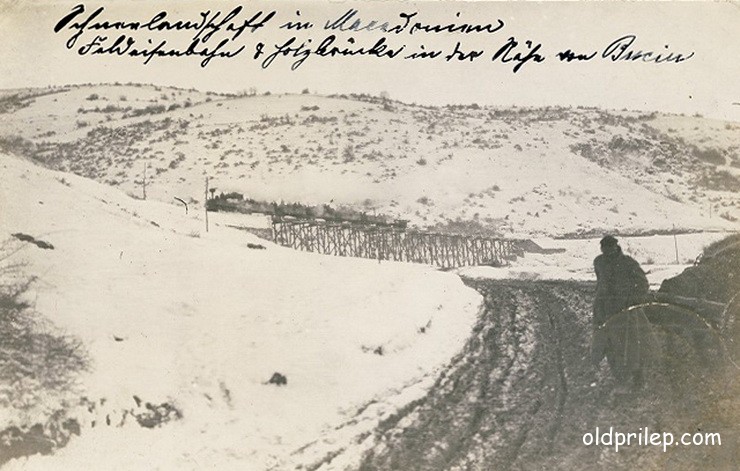 Schneelandschaft in Macedonien
Feldeisenbahn & Holzbrücke in der Nähe von
oldprilep.com